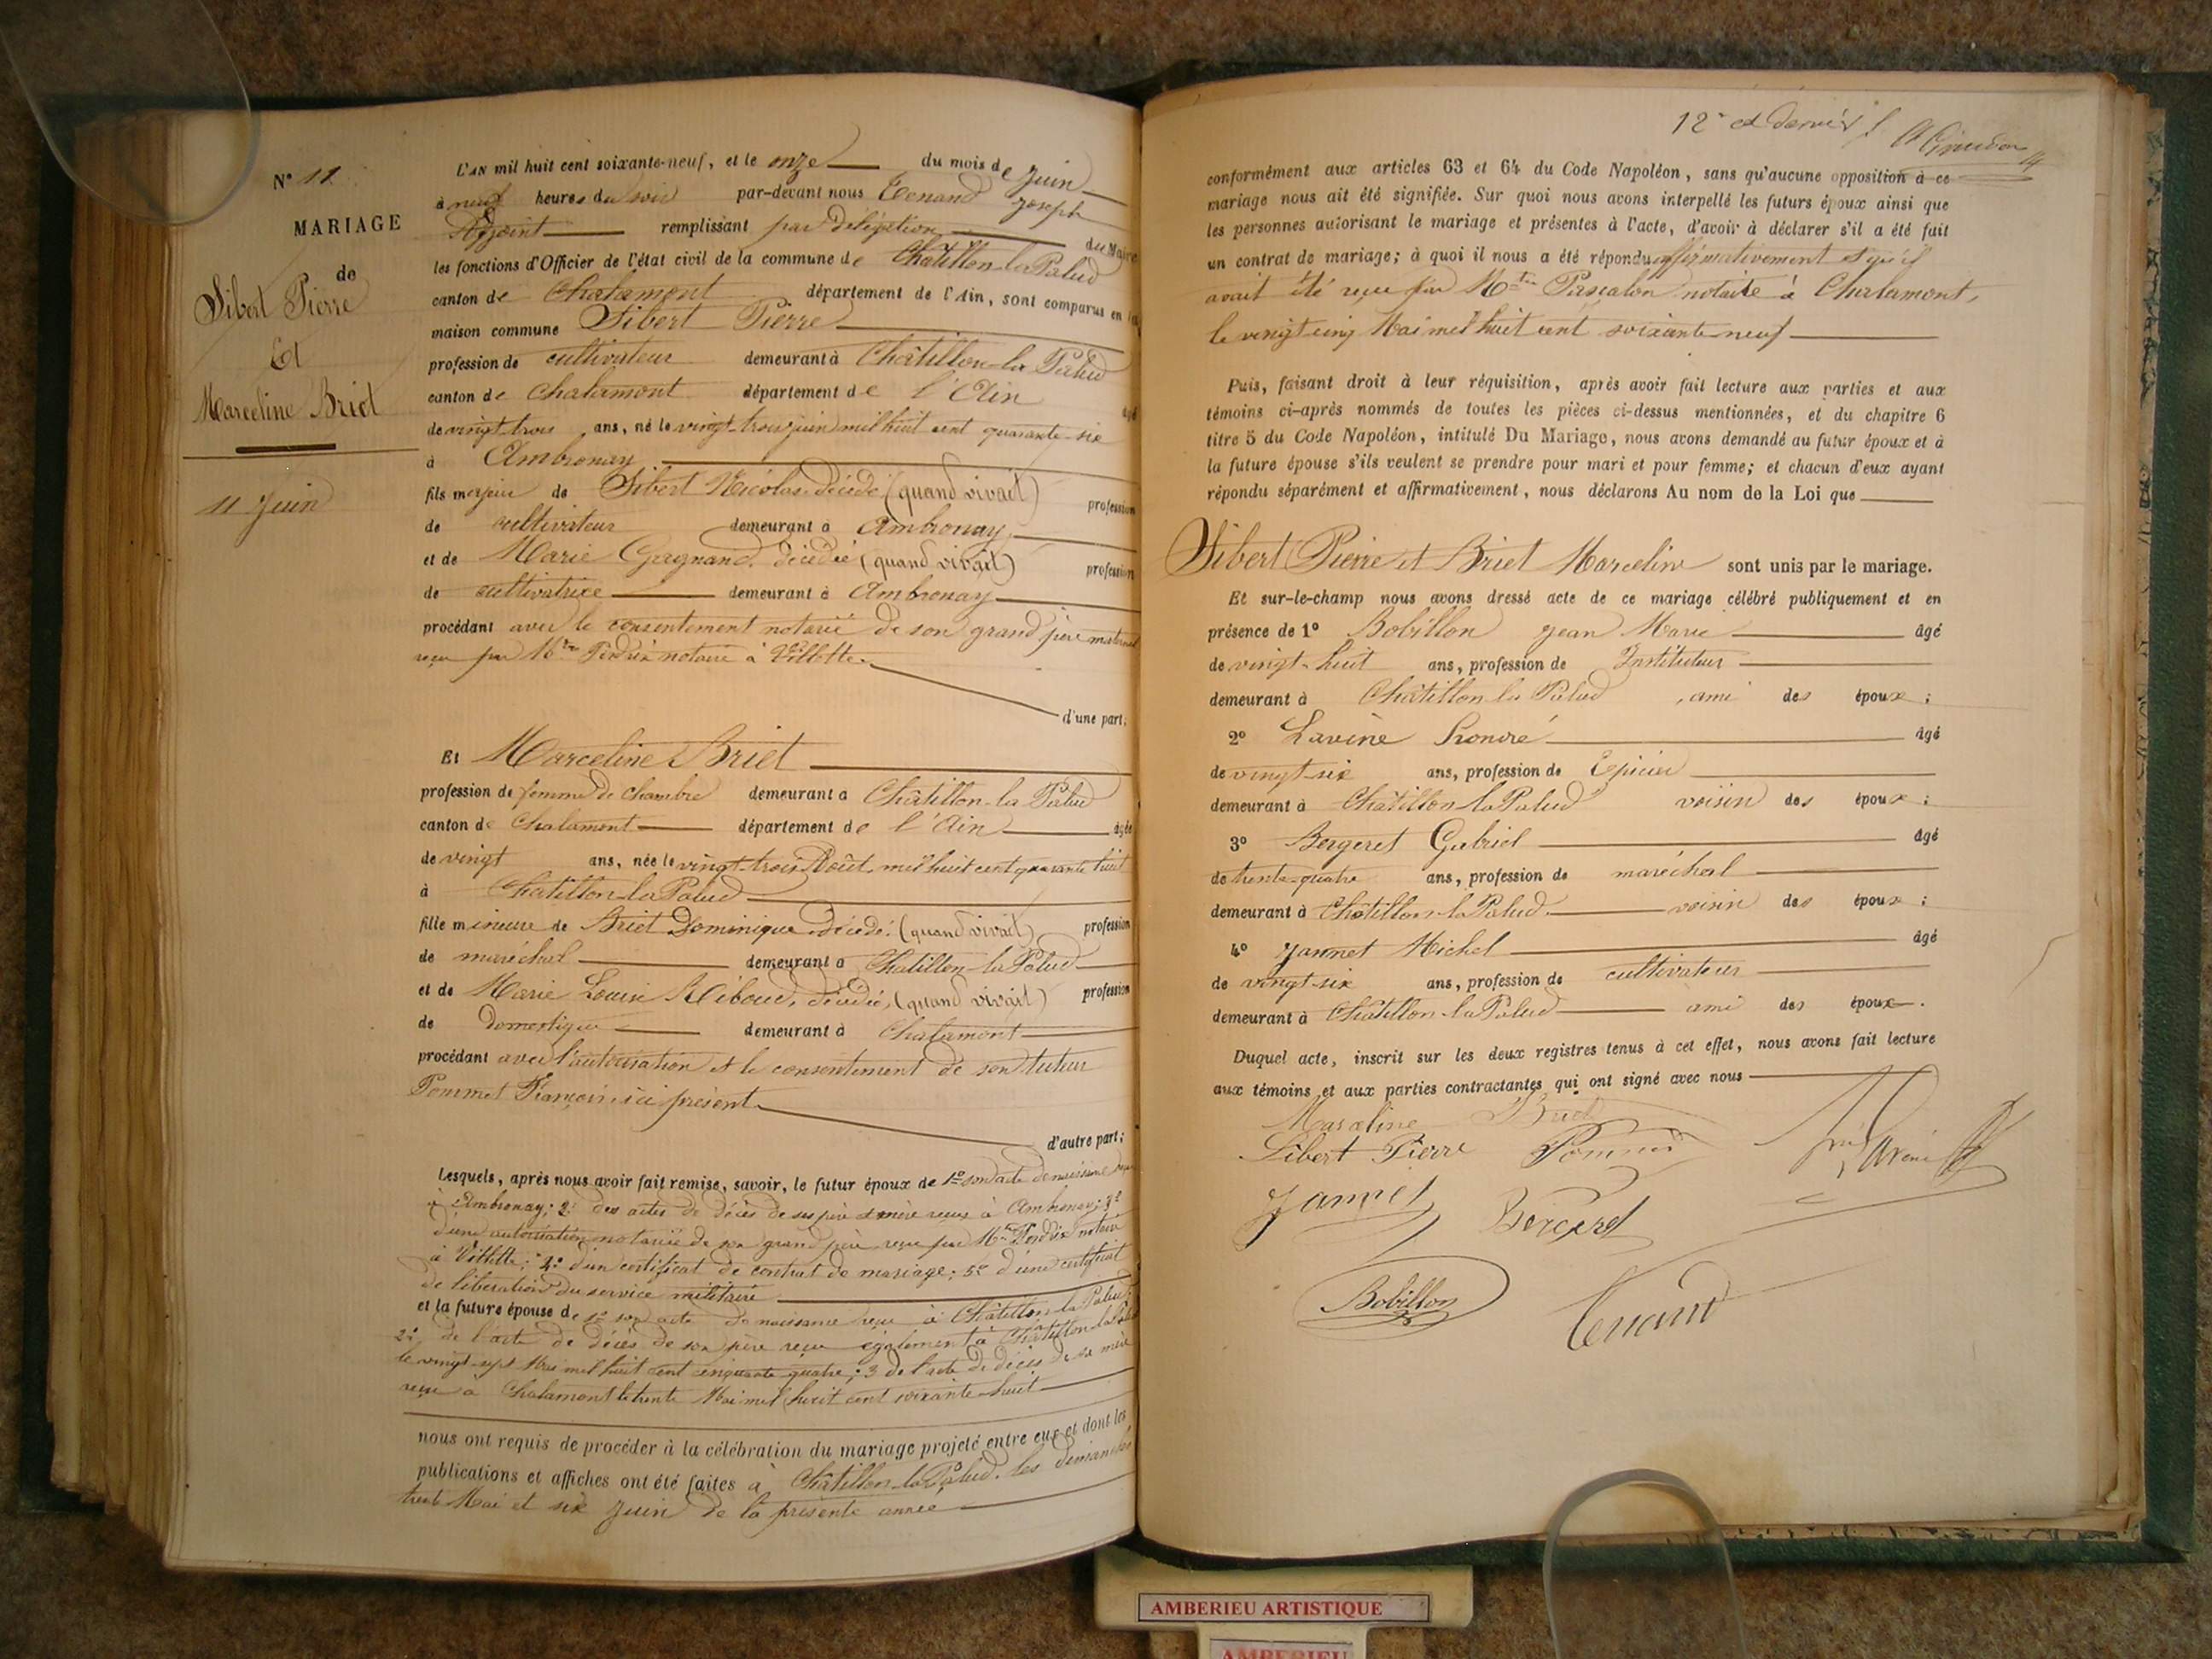 N° 11
MARIAGE
de
Sibert Pierre
Et
Marceline Briet
11 Juin
L'AN mil huit cent soixante-neuf, et le onze du mois de Juin
à neuf heures du soir par-devant nous Tenand Joseph
Adjoint remplissant par délégation du Maire
les fonctions d'Officier de l'état civil de la commune de Châtillon-la-Palud
canton de Chalamont département de l'Ain, sont comparus en la
maison commune Sibert Pierre
profession de cultivateur demeurant à Châtillon-la-Palud
canton de Chalamont département de l'Ain âgé
de vingt-trois ans, né le vingt-trois juin mil huit cent quarante-six
à Ambronay
fils majeur de Sibert Nicolas décédé (quand vivait) profession
de cultivateur demeurant à Ambronay
et de Marie Gagnand, décédée (quand vivait) profession
de cultivatrice demeurant à Ambronay
procédant avec le consentement notarié de son grand père maternel
reçu par Mtre Perdrix notaire à Villette
d'une part;
Et Marceline Briet
profession de femme de chambre demeurant à Châtillon-la-Palud
canton de Chalamont département de l'Ain âgée
de vingt ans, née le vingt-trois Août mil huit cent quarante huit
à Châtillon-la-Palud
fille mineure de Briet Dominique décédé (quand vivait) profession
de maréchal demeurant à Châtillon-la-Palud
et de Marie Louise Riboud, décédée, (quand vivait) profession
de domestique demeurant à Chalamont
procédant avec l'autorisation et le consentement de son tuteur
Pommet François ici présent
d'autre part;
Lesquels, après nous avoir fait remise, savoir, le futur époux de 1° son acte de naissance reçu
à Ambronay; 2° des actes de décès de ses père et mère reçus à Ambronay; 3°
d'une autorisation notariée de son grand père reçue par Mtre Perdrix notaire
à Villette; 4° d'un certificat de contrat de mariage; 5° d'une certificat
de libération du service militaire
et la future épouse de 1° son acte de naissance reçu à Châtillon-la-Palud;
2° de l'acte de décès de son père reçu également à Châtillon-la-Palud
le vingt-sept Mai mil huit cent cinquante quatre; 3 de l'acte de décès de sa mère
reçu à Chalamont le trente Mai mil huit cent soixante-huit
nous ont requis de procéder à la célébration du mariage projeté entre eux et dont les
publications et affiches ont été faites à Châtillon-la-Palud. les dimanches
trente Mai et six Juin de la présente année
12e et dernier f.
conformément aux articles 63 et 64 du Code Napoléon, sans qu'aucune opposition à ce
mariage nous ait été signifiée. Sur quoi nous avons interpellé les futurs époux ainsi que
les personnes autorisant le mariage et présentes à l'acte, d'avoir à déclarer s'il a été fait
un contrat de mariage; à quoi il nous a été répondu affirmativement & qu'il
avait été reçu par Mtre Pascalon notaire à Chalamont,
le vingt cinq Mai mil huit cent soixante-neuf
Puis, faisant droit à leur réquisition, après avoir fait lecture aux parties et aux
témoins ci-après nommés de toutes les pièces ci-dessus mentionnées, et du chapitre 6
titre 5 du Code Napoléon, intitulé Du Mariage, nous avons demandé au futur époux et à
la future épouse s'ils veulent se prendre pour mari et pour femme; et chacun d'eux ayant
répondu séparément et affirmativement, nous déclarons Au nom de la Loi que
Sibert Pierre et Briet Marceline sont unis par le mariage.
Et sur-le-champ nous avons dressé acte de ce mariage célébré publiquement et en
présence de 1° Bobillon Jean Marie âgé
de vingt-huit ans, profession de Instituteur
demeurant à Châtillon-la-Palud, ami des époux;
2° Lavène Honoré âgé
de vingt-six ans, profession de Epicier
demeurant à Châtillon-la-Palud voisin des époux;
3° Bergeret Gabriel âgé
de trente-quatre ans, profession de maréchal
demeurant à Châtillon-la-Palud voisin des époux;
4° Jannet Michel âgé
de vingt-six ans, profession de cultivateur
demeurant à Châtillon-la-Palud ami des époux.
Duquel acte, inscrit sur les deux registres tenus à cet effet, nous avons fait lecture
aux témoins et aux parties contractantes qui ont signé avec nous
Marceline Briet
Sibert Pierre Pommet
Jannet Bergeret
Bobillon Tenand
AMBERIEU ARTISTIQUE
AMBERIEU